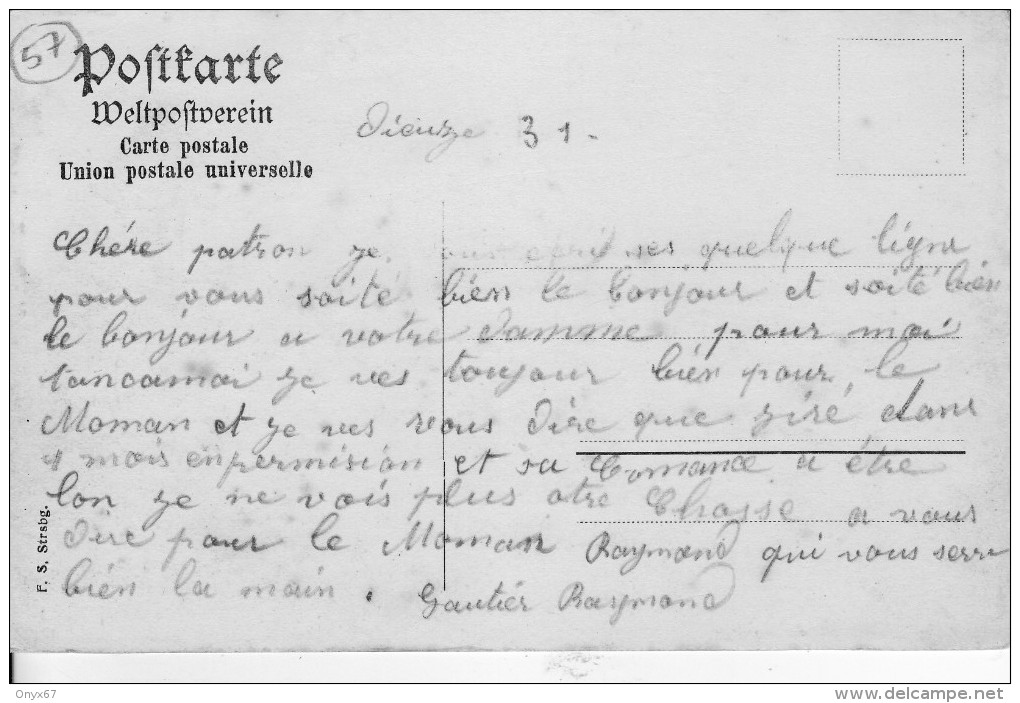 57
Postkarte
Weltpostverein
Carte postale
Union postale universelle
Dieuze 31-
Chére patron je vous ses quelque ligne
pour vous soité bién le bonjour et soité bién
le bonjour a votre Damme pour moi
tancamoi je ves toujour bién pour le
Moman et je ves vous dire que jiré dans
1 mois enpermisión et sa Comance a étre
lon je ne vois plus otre Chosse a vous
dire pour le Moman Raymond qui vous serre
bién la main. Gautiér Raymond
F. S. Strsbg.
Onyx67
http://www.delcampe.net